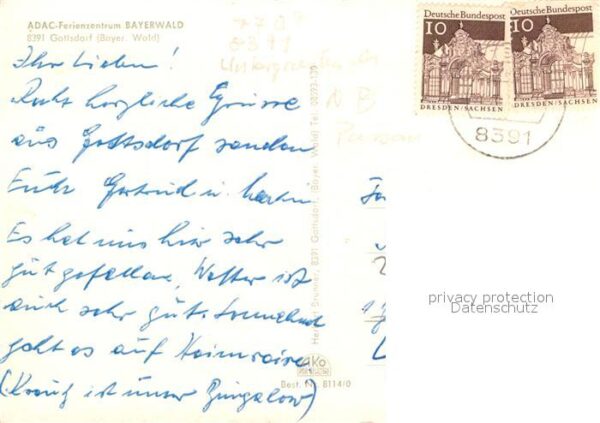 ADAC-Ferienzentrum BAYERWALD
8391 Gottsdorf (Bayer. Wald)
Ihr Lieben!
Recht herzliche Grüsse
aus Gottsdorf senden
Euch Gertrud u. Martin
Es hat uns hier sehr
gut gefallen, Wetter ist
auch sehr gut. Sonnabend
geht es auf Heimreise
(Kreuz ist unser Bungalow)
Herbert Brunner, 8391 Gottsdorf, (Bayer. Wald) Tel. 08593-139
AKo
Best. Nr. 8114/0
Deutsche Bundespost
10
DRESDEN/SACHSEN
Deutsche Bundespost
10
DRESDEN/SACHSEN
8391
privacy protection
Datenschutz
8391
NB